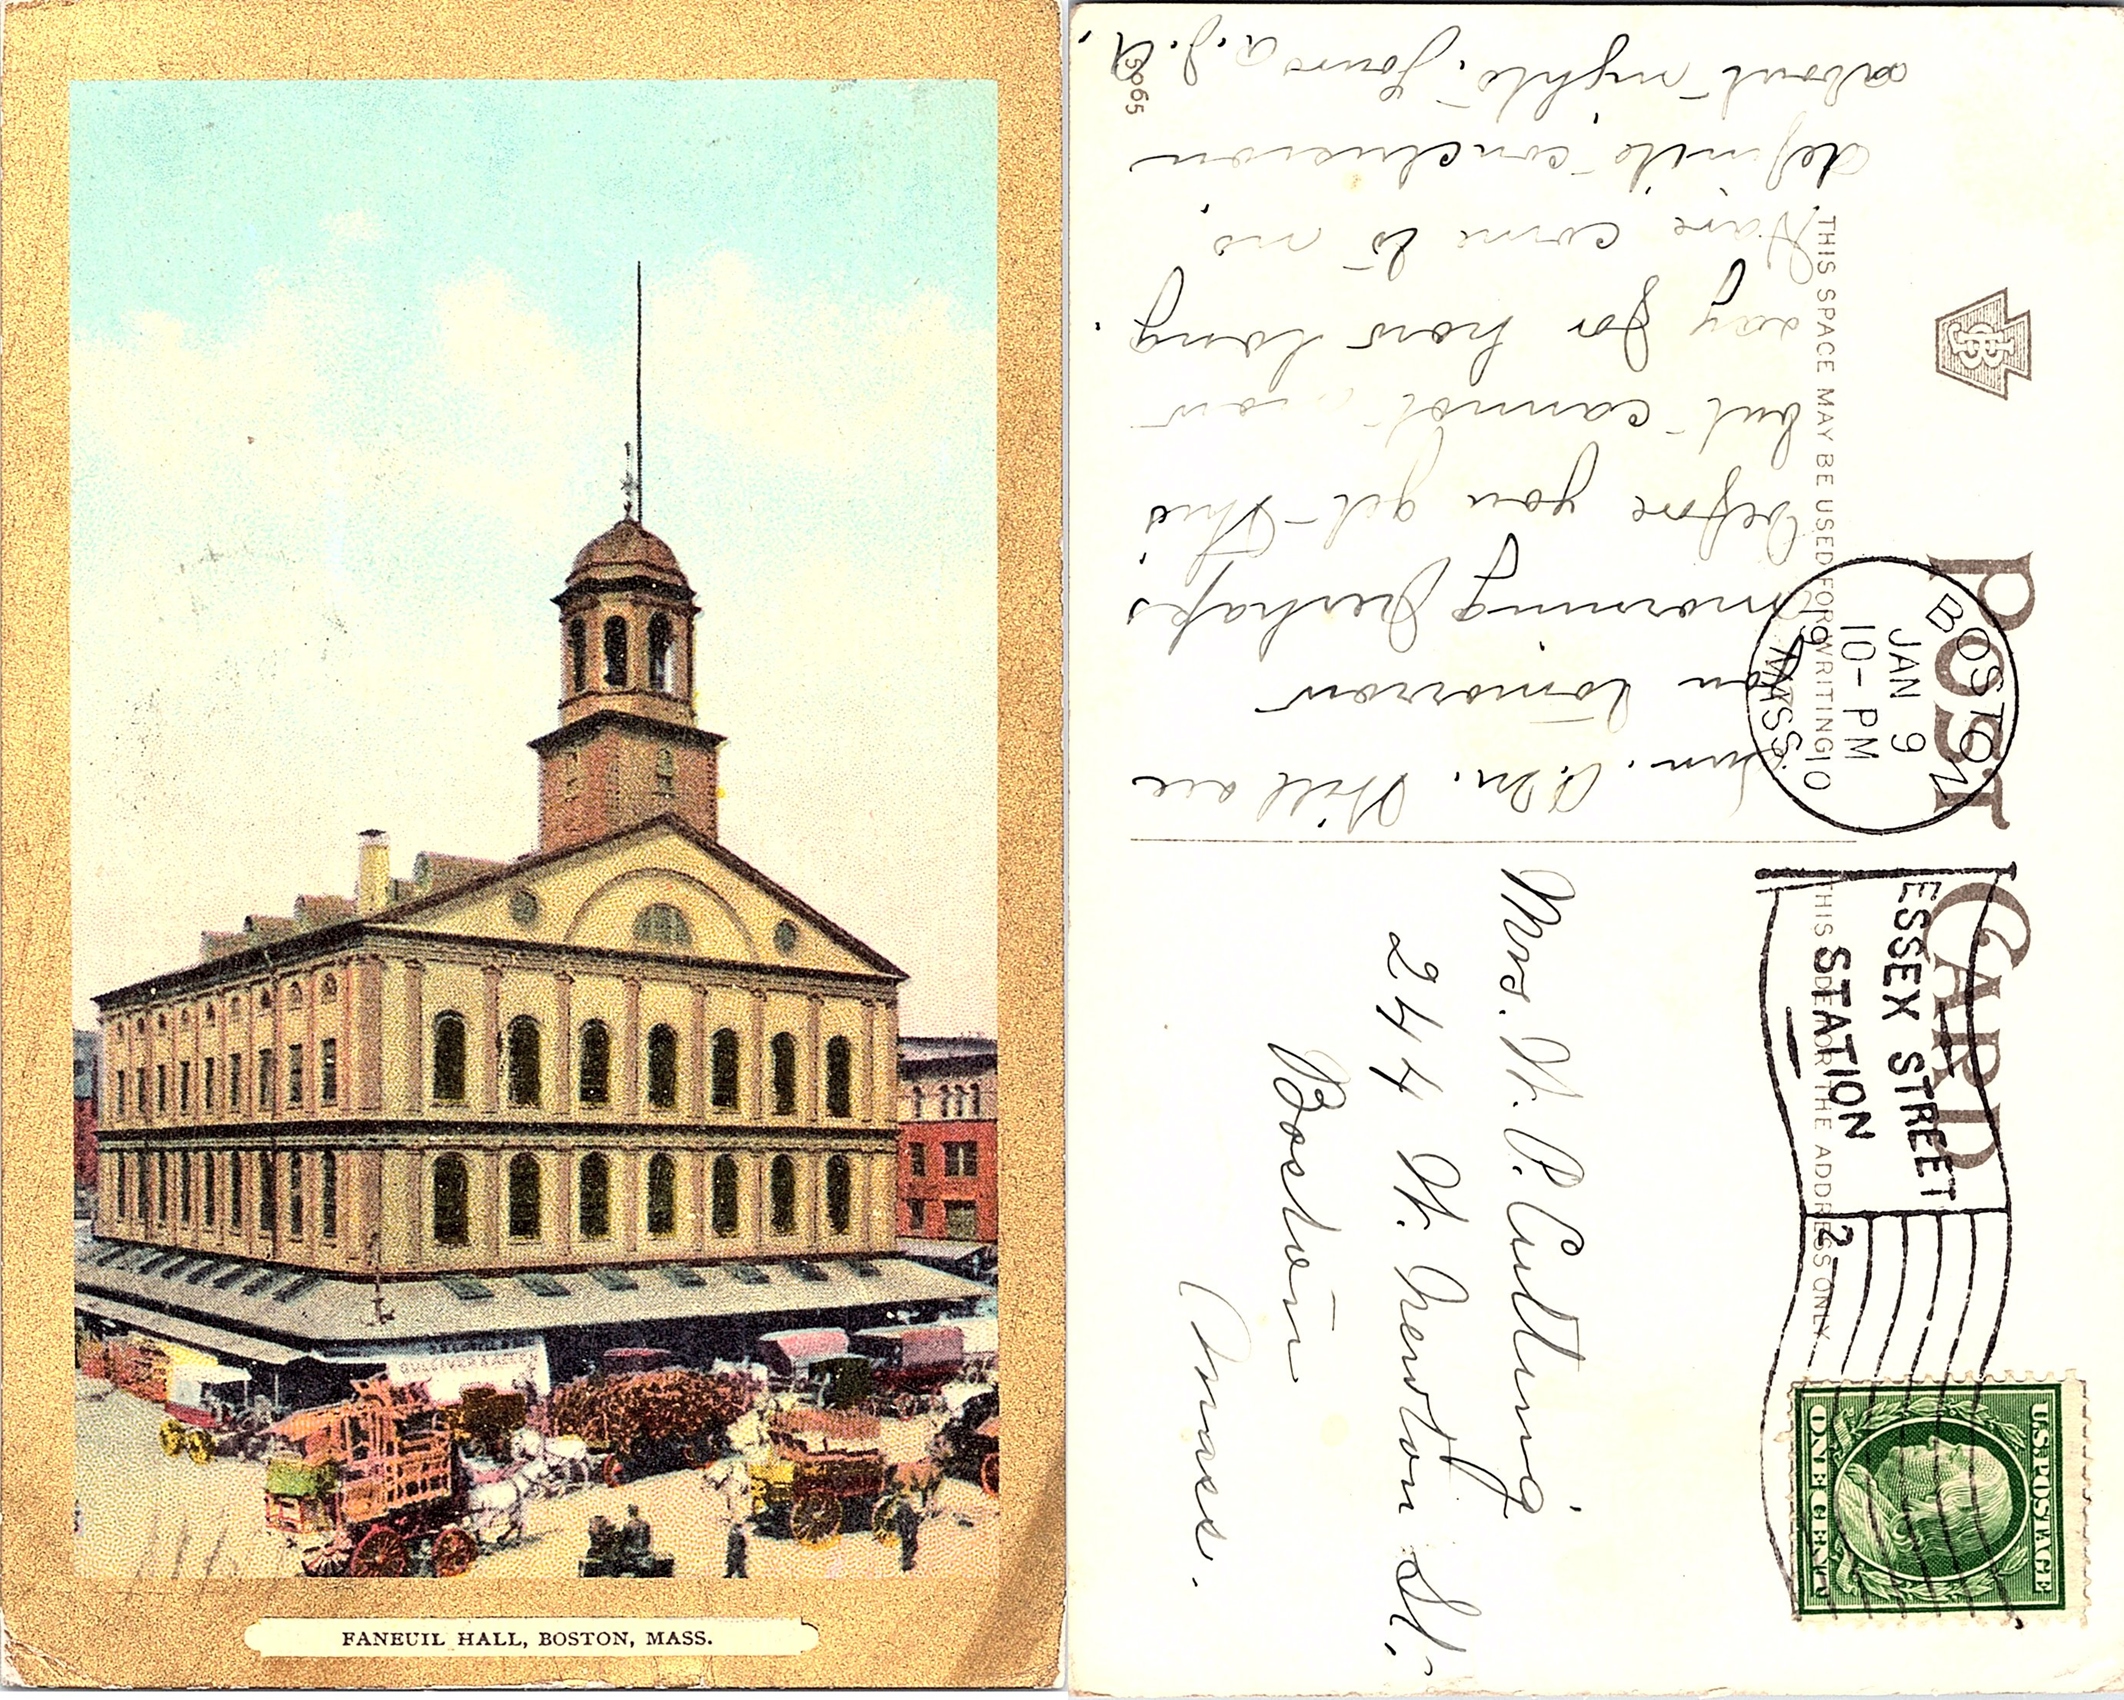 GULLIVER &
FANEUIL HALL, BOSTON, MASS.
POST CARD
THIS SPACE MAY BE USED FOR WRITING
THIS SIDE FOR THE ADDRESS ONLY
BOSTON
JAN 9
10-PM
1910
MASS.
ESSEX STREET
STATION
2
U.S. POSTAGE
ONE CENT
Sun. A.M. Will see
you tomorrow
morning perhaps
before you get this
but cannot now
say for how long
Have come to no
definite conclusion
about nights. Yours A.J.A.
Mrs. W. P. Cutting
244 W. Newton St.
Boston
Mass.
JB